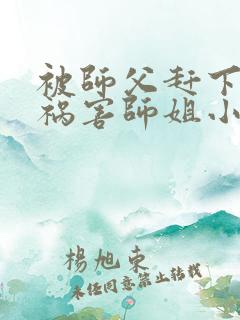 被師父赶下
祸害師姐小
楊旭東
未经同意禁止转载